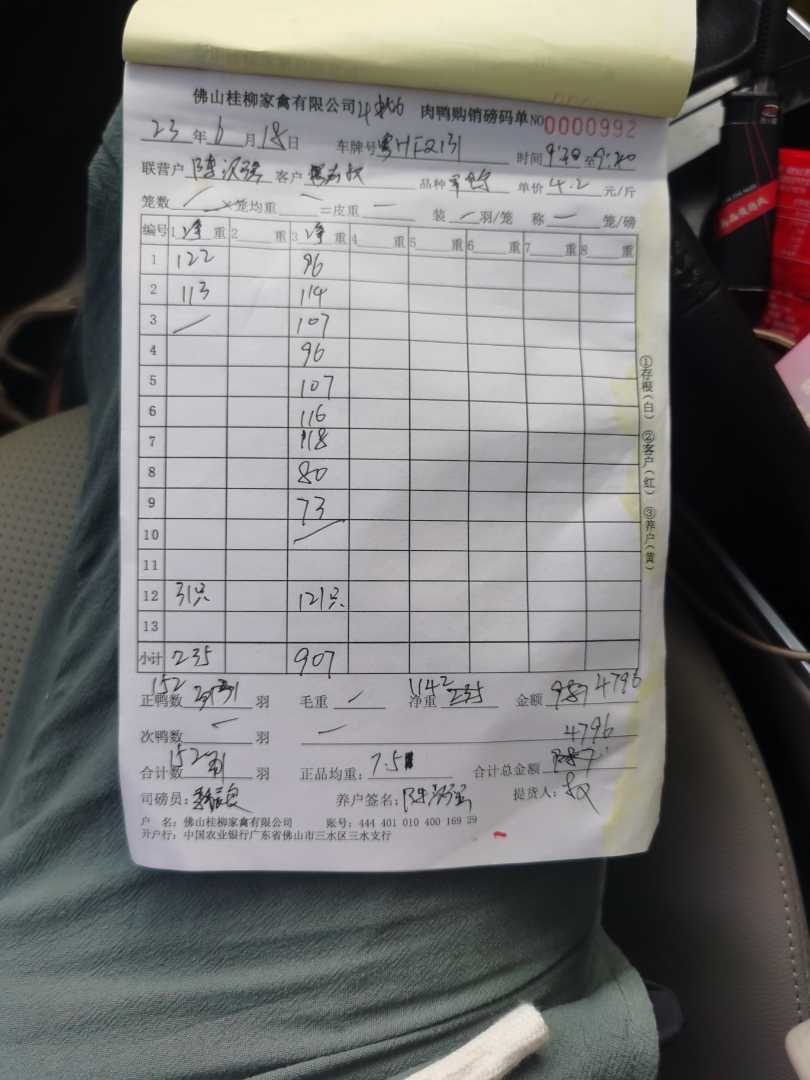 佛山桂柳家禽有限公司 肉鸭购销磅码单 NO 0000992
23 年 6 月 18 日 车牌号 粤HF2131 时间 9:30 至 9:40
联营户 陈汉强 客户 品种 单价 4.2 元/斤
笼数 / ×笼均重 — =皮重 — 装 — 羽/笼 称 — 笼/磅
编号 1 净 重 2 重 3 净 重 4 重 5 重 6 重 7 重 8 重
1 122 96
2 113 114
3 / 107
4 96
5 107
6 116
7 118
8 80
9 73
10 /
11
12 31只 121只
13
小计 235 907
正鸭数 152 羽 毛重 / 净重 1142 235 金额 987 4796
次鸭数 — 羽 — 4796
合计数 152 31 羽 正品均重: 7.51 合计总金额
司磅员: 养户签名: 陈汉强 提货人:
户 名: 佛山桂柳家禽有限公司 账号: 444 401 010 400 169 29
开户行: 中国农业银行广东省佛山市三水区三水支行
①存根(白) ②客户(红) ③养户(黄)